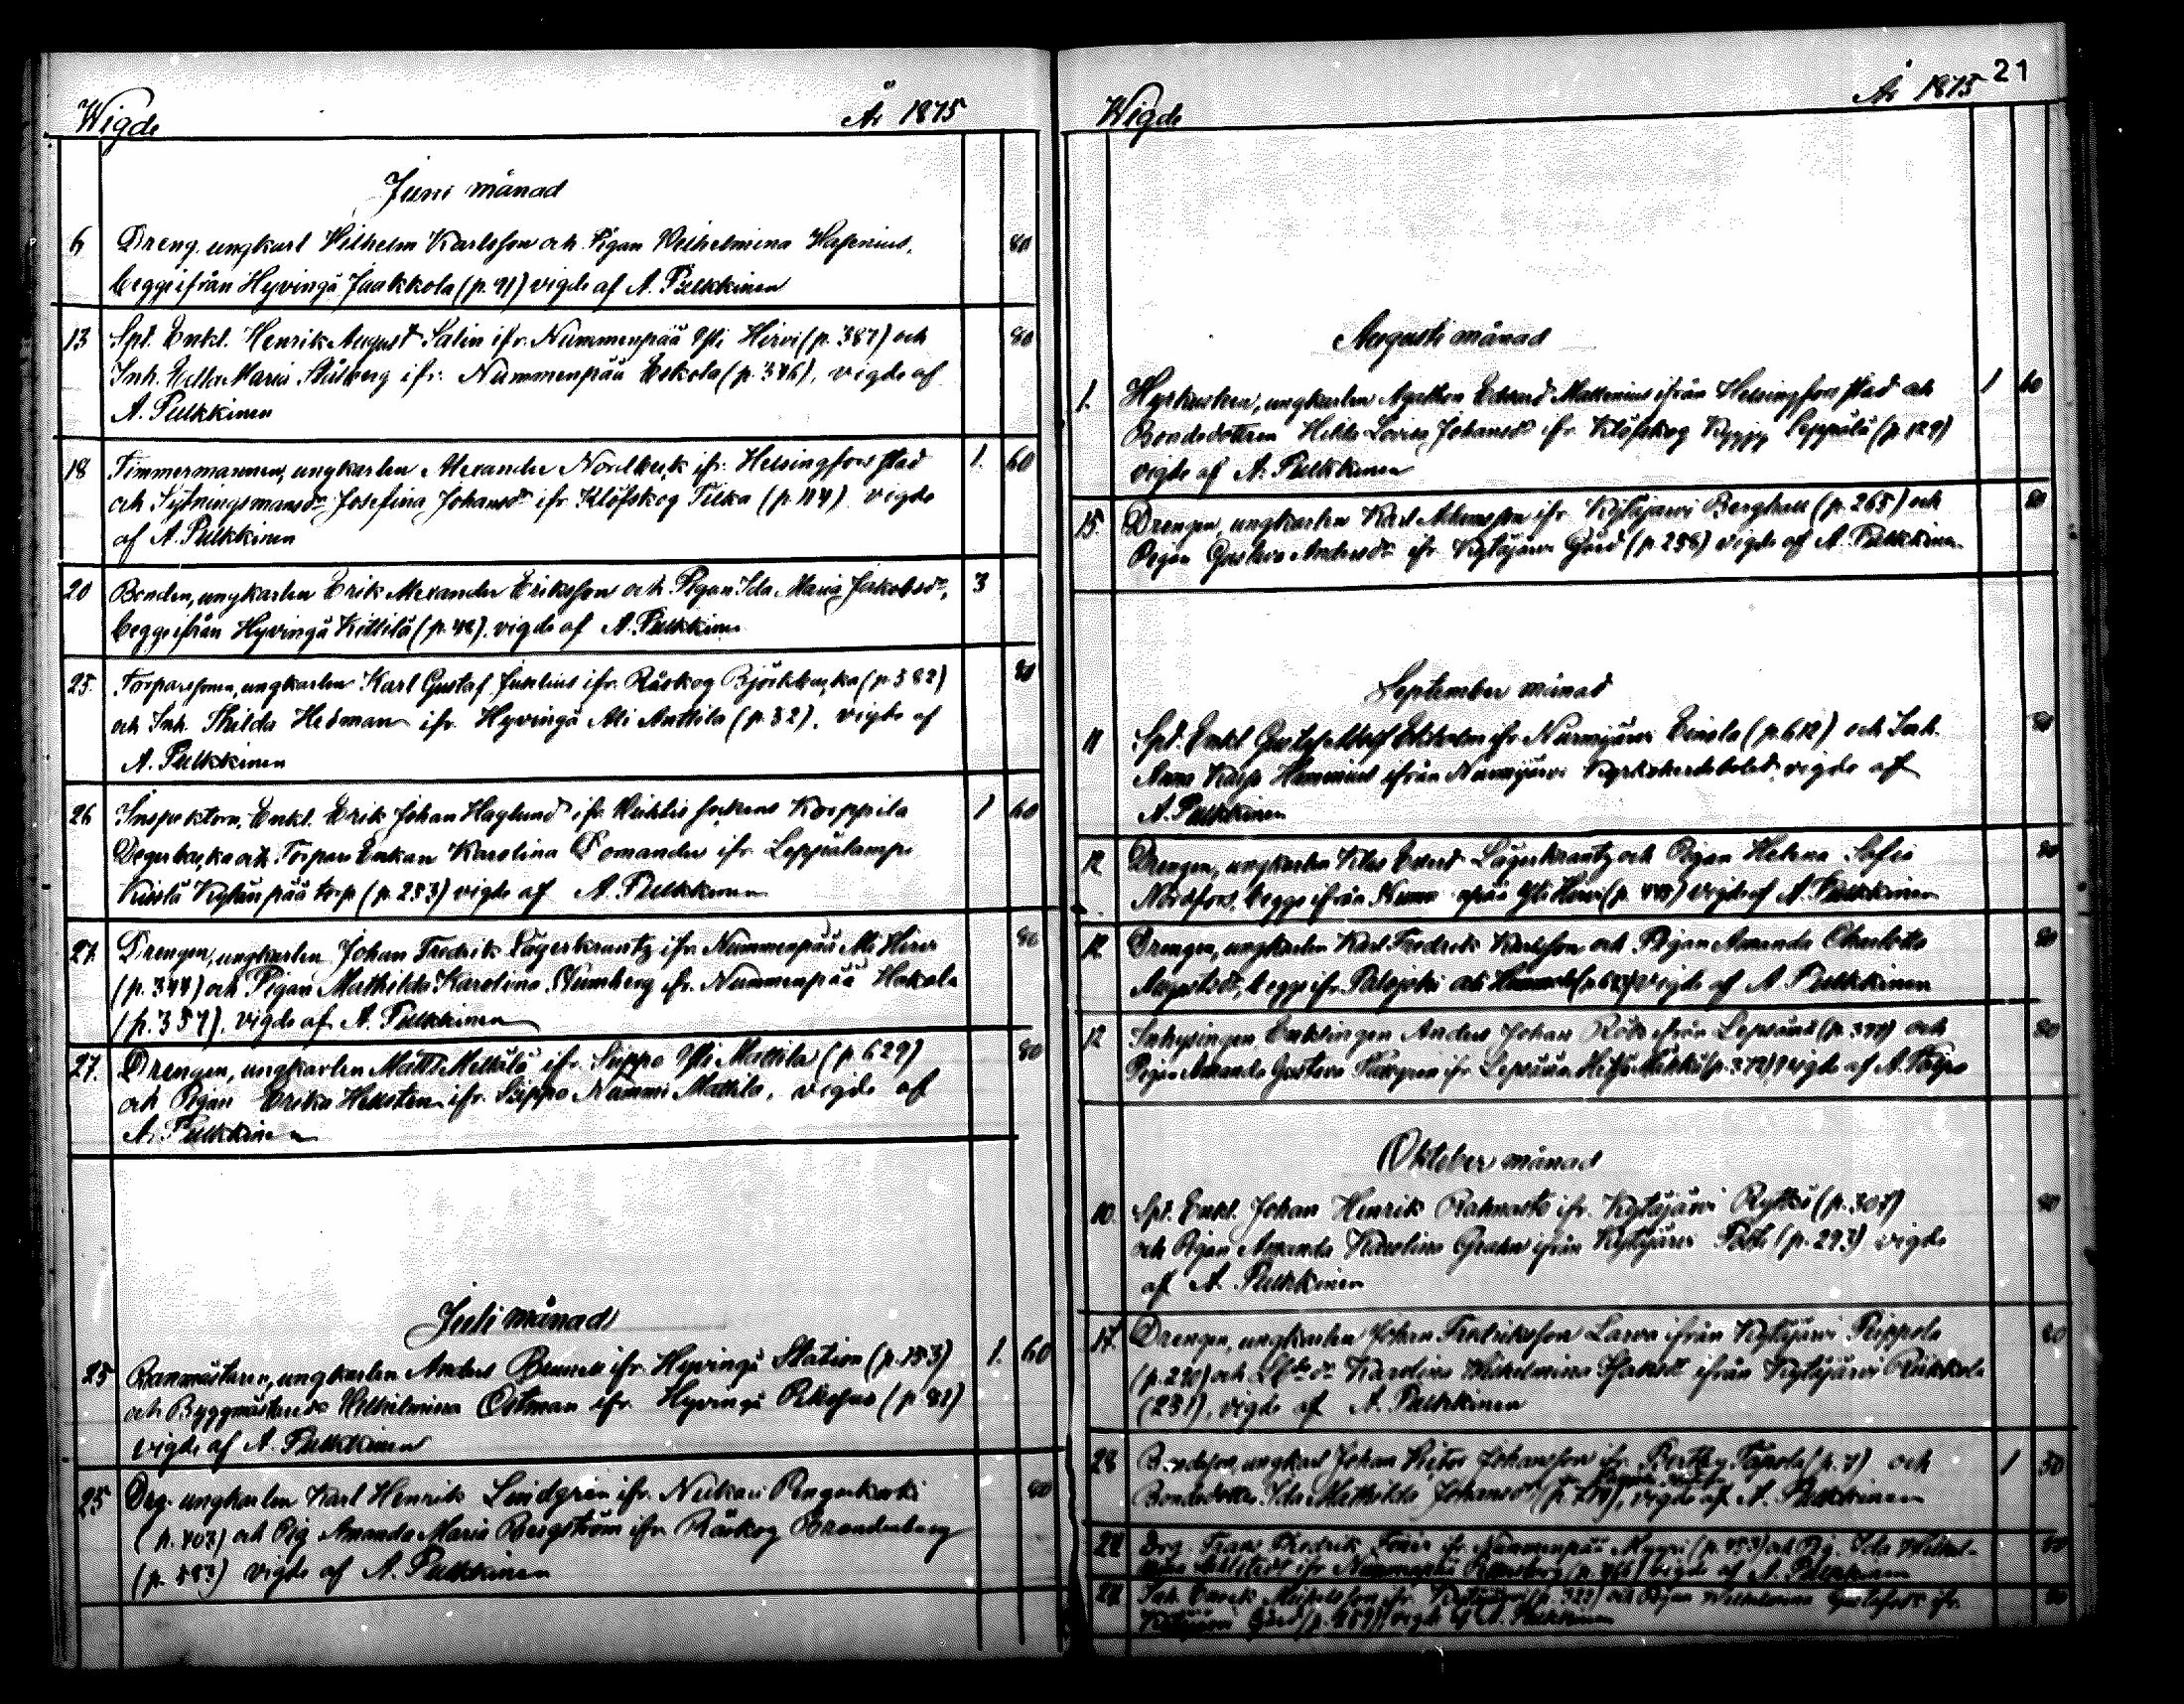 Wigde År 1875
Juni månad
6 Dreng. ungkarl Wilhelm Karlsson och Pigan Wilhelmina Hasenius, 80
begge ifrån Hyvingä Jaakkola (p. 91) vigde af A. Pulkkinen
13 Spt. Enkl. Henrik August Salin ifr. Nummenpää Yli Hirvi (p. 387) och 80
Inh. Maria Stålberg ifr. Nummenpää Eskola (p. 376), vigde af
A. Pulkkinen
18 Timmermannen, ungkarlen Alexander Nordbeck ifr. Helsingfors stad 1. 60
och Sytningsmansdr Josefina Johansdr ifr. Klöfskog Tilka (p. 114) vigde
af A. Pulkkinen
20 Bonden, ungkarlen Erik Alexander Eriksson och Pigan Ida Maria Jakobsdr, 3
begge ifrån Hyvingä Kittilä (p. 42), vigde af A. Pulkkinen
25. Torparesonen, ungkarlen Karl Gustaf Juslius ifr. Råskog Björkbacka (p. 382) 80
och Inh. Thilda Hedman ifr. Hyvingä Ali Anttila (p. 32), vigde af
A. Pulkkinen
26 Inspektorn, Enkl. Erik Johan Haglund ifr. Wichtis sockens Korppila 1 60
Degerbacka och Torpare Enkan Karolina Domander ifr. Leppälampi
Kytänpää torp (p. 253) vigde af A. Pulkkinen
27. Drengen, ungkarlen Johan Fredrik Lägerkrantz ifr. Nummenpää Ali Hirvi 80
(p. 344) och Pigan Mathilda Karolina Blumberg ifr. Nummenpää Hakala
(p. 357), vigde af A. Pulkkinen
27. Drengen, ungkarlen Matts Mellilä ifr. Seppo Yli Mattila (p. 629) 80
och Pigan Erika Hellsten ifr. Seppo Nummi Mattila, vigde af
A. Pulkkinen
Juli månad
25 Banmästaren, ungkarlen Anders ifr. Hyvingä Station (p. 153) 1. 60
och Byggmästaredr Wilhelmina Östman ifr. Hyvingä (p. 81)
vigde af A. Pulkkinen
25 Drg. ungkarlen Karl Henrik Lindgrén ifr. Nukari Pengerkoski 80
(p. 403) och Pig. Amanda Maria Bergström ifr. Råskog Brandenburg
(p. 583) vigde af A. Pulkkinen
Wigde År 1875 21
Augusti månad
1. Hyrkusken, ungkarlen Agathon Edvard ifrån Helsingfors stad och 1 60
Bondedottren Hilda Lovisa Johansdr ifr. Klöfskog Kyppy Leppälä (p. 129)
vigde af A. Pulkkinen
15. Drengen, ungkarlen Karl Adamsson ifr. Kytäjärvi Berghall (p. 265) och 80
Pigan Gustava Andersdr ifr. Kytäjärvi Gård (p. 256) vigde af A. Pulkkinen
September månad
11 Spt. Enkl. Gustaf Adolf Ekholm ifr. Nurmijärvi Einola (p. 612) och Inh. 80
Anna Kajs. ifrån Nurmijärvi Kyrkoherdebolet, vigde af
A. Pulkkinen
12 Drengen, ungkarlen Klas Edvard Lägerkrantz och Pigan Helena Sofia 80
Nordfors, begge ifrån Nummenpää Yli Hirvi (p. 443) vigde af A. Pulkkinen
12 Drengen, ungkarlen Karl Fredrik Karlsson och Pigan Amanda Charlotta 80
Augustsdr, begge ifr. Palojoki vigde af A. Pulkkinen
12 Inhysingen, Enklingen Anders Johan ifrån Lepsämä (p. 391) och 80
Pigan Amanda Gustava ifr. Lepsämä (p. 372) vigde af A.
Oktober månad
10. Spt. Enkl. Johan Henrik ifr. Kytäjärvi (p. 307) 80
och Pigan Amanda Karolina Grahn ifrån Kytäjärvi (p. 293) vigde
af A. Pulkkinen
17. Drengen, ungkarlen Johan Fredriksson Larva ifrån Kytäjärvi Piippola 80
(p. 290) och Karolina Wilhelmina ifrån Kytäjärvi Rükkola
(251), vigde af A. Pulkkinen
28 Bondeson, ungkarl Johan Viktor Johansson ifr. Perttu Tapola (p. 7) och 1 50
Bondedottr. Ida Mathilda Johansdr vigde af A. Pulkkinen
Drg. Frans Fredrik ifr. Nummenpää Myyri (p. 453) och Pig. Ida Wilhel- 80
mina ifr. Nummenpää vigde af A. Pulkkinen
Inh. ifr. Kytäjärvi (p. 322) och Pigan Wilhelmina Gustafsdr ifr. 80
Kytäjärvi Gård vigde af A. Pulkkinen